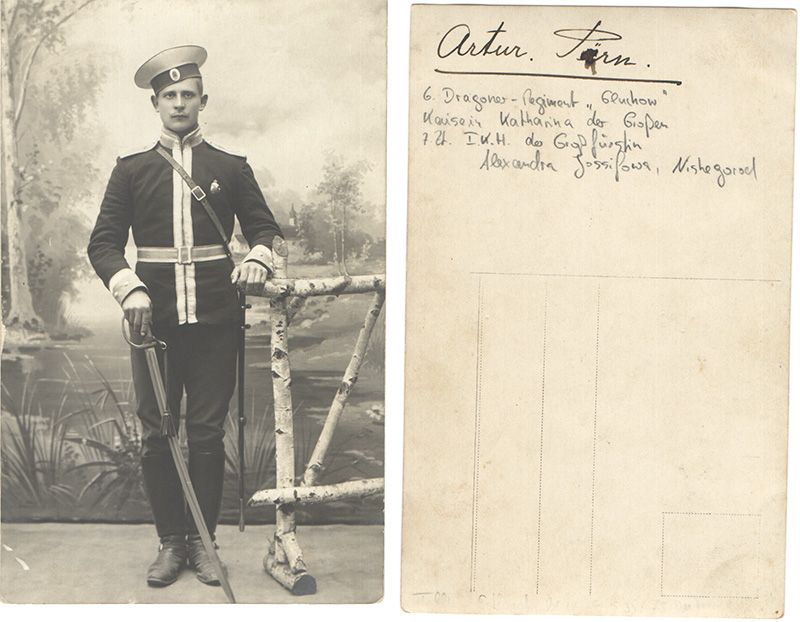 Artur. Pärn.
6. Dragoner-Regiment „Gluchow"
Kaiserin Katharina der Großen
I.K.H. der Großfürstin
Alexandra Jossifowa, Nishegorod